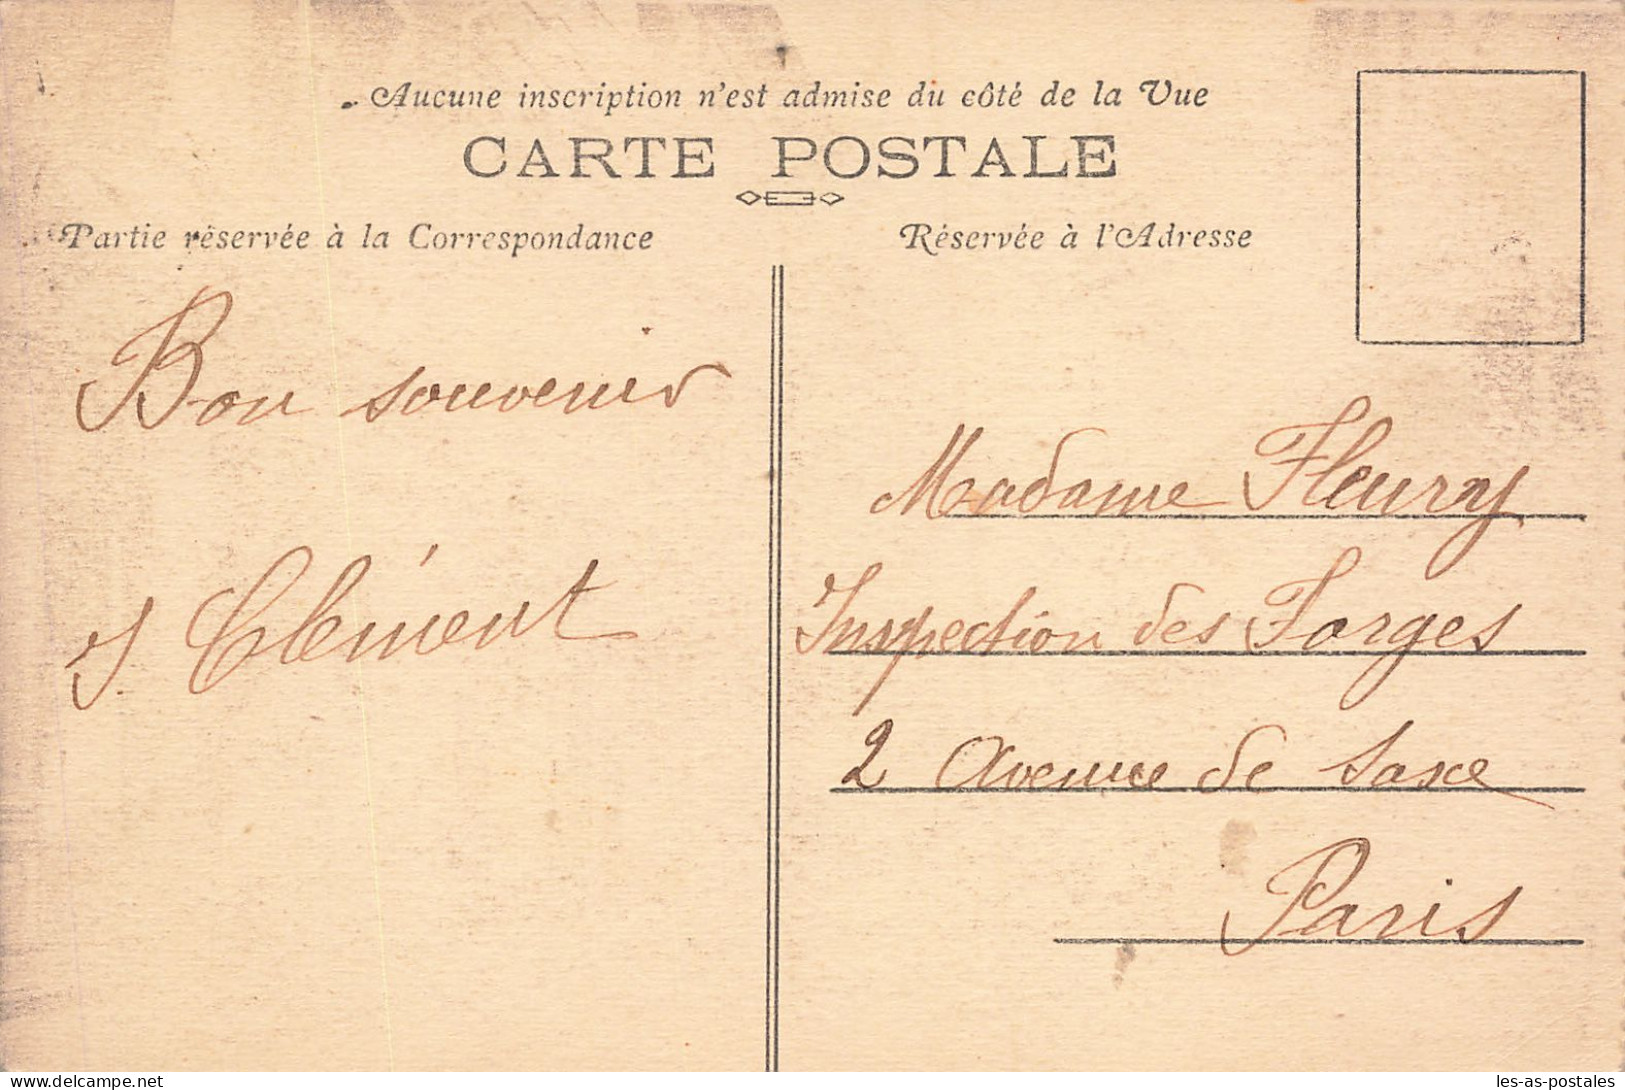 Aucune inscription n'est admise du côté de la Vue
CARTE POSTALE
Partie réservée à la Correspondance
Réservée à l'Adresse
Bon souvenir
J Clément
Madame Fleury
Inspection des Forges
2 Avenue de Saxe
Paris
Website : les-as-postales
les-as-postales